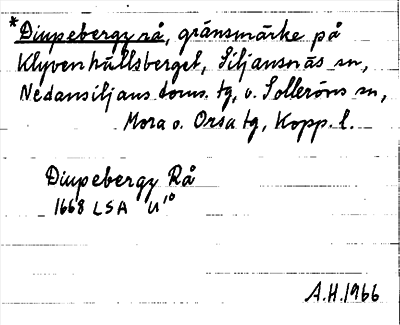 *Diupebergz rå, gränsmärke på
Klyvenhällsberget, Siljansnäs sn,
Nedansiljans doms. tg, o. Solleröns sn,
Mora o. Orsa tg, Kopp. l.
Diupebergz Rå
1668 LSA U¹⁰
A.H. 1966